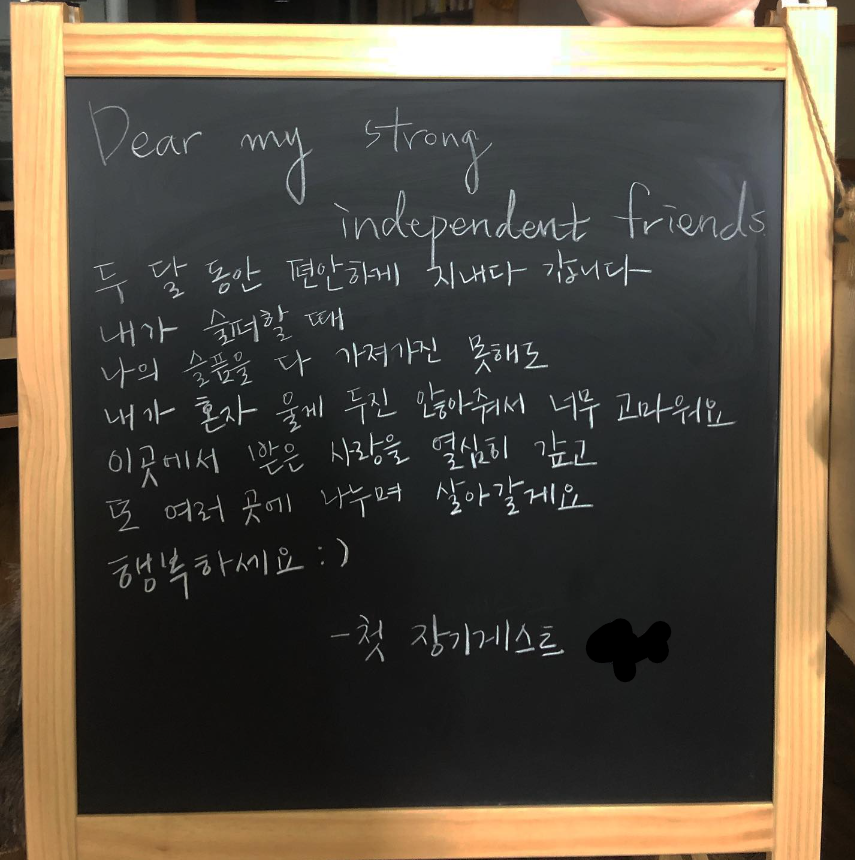 Dear my strong
independent friends
두 달 동안 편안하게 지내다 갑니다
내가 슬퍼할 때
나의 슬픔을 다 가져가진 못해도
내가 혼자 울게 두진 않아줘서 너무 고마워요
이곳에서 받은 사랑을 열심히 갚고
또 여러 곳에 나누며 살아갈게요
행복하세요 :)
-첫 장기게스트